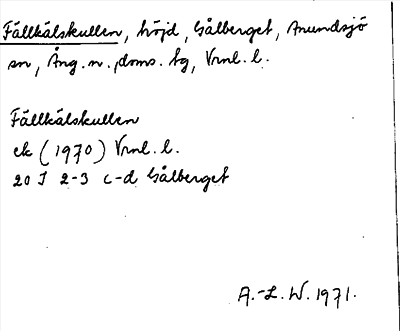 Fällkälskullen, höjd, Gålberget, Anundsjö
sn, Ång. n. doms. tg, Vrnl. l.
Fällkälskullen
ek (1970) Vrnl. l.
20 J 2-3 c-d Gålberget
A.-L. W. 1971.